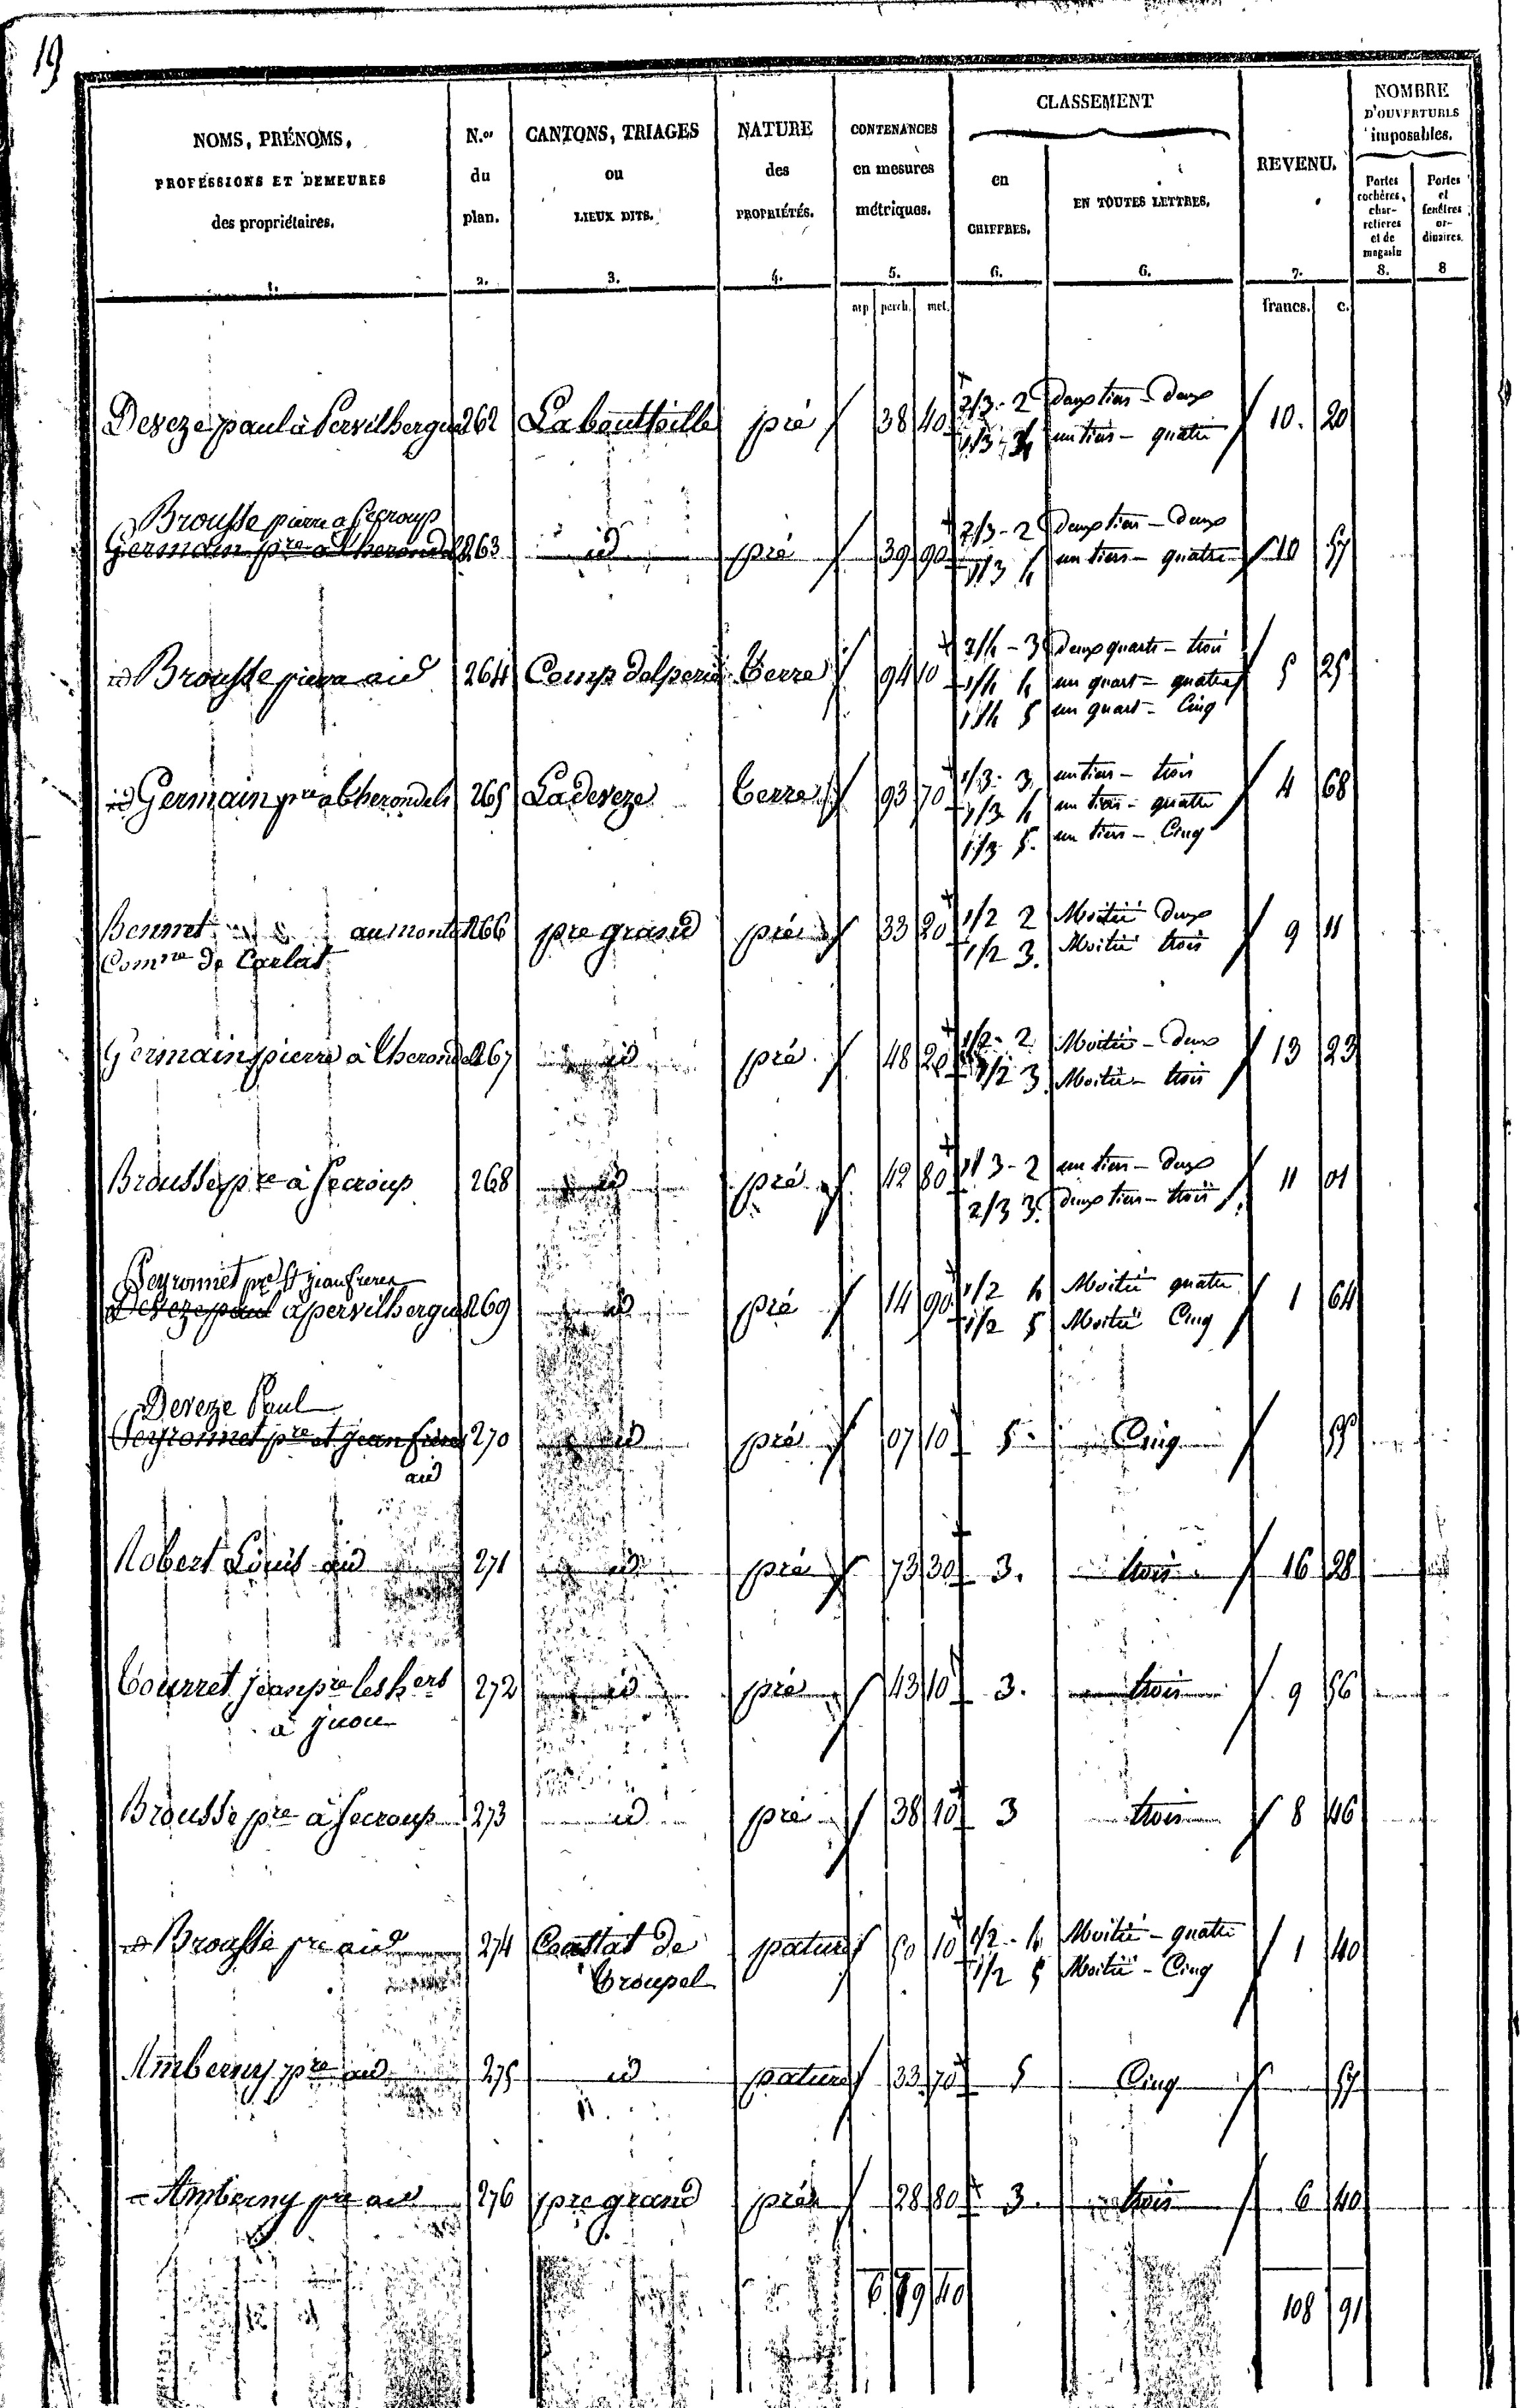 19
NOMS, PRÉNOMS, PROFESSIONS ET DEMEURES des propriétaires. 1.
N.os du plan. 2.
CANTONS, TRIAGES ou LIEUX DITS. 3.
NATURE des PROPRIÉTÉS. 4.
CONTENANCES en mesures métriques. 5.
CLASSEMENT
en CHIFFRES. 6.
EN TOUTES LETTRES. 6.
REVENU. 7.
NOMBRE D'OUVERTURES imposables.
Portes cochères, charretieres et de magasin 8.
Portes et fenêtres ordinaires. 8
arp perch. met. francs. c.
Deveze paul à Pervilhergues 262 La bouttoille pré 38 40 2/3 - 2 deux tiers - deux 10. 20
1/3 - 4 un tiers - quatre
Brousse pierre a Secroup
Germain pre à Cherondels 263 id pré 39 90 2/3 - 2 deux tiers - deux 10 57
1/3 4 un tiers - quatre
id Brousse pierre aid 264 Camp delperié terre 94 10 2/4 - 3 deux quarts - trois 5 25
1/4 4 un quart - quatre
1/4 5 un quart - Cinq
id Germain pre a Cherondels 265 La deveze terre 93 70 1/3 - 3 un tiers - trois 4 68
1/3 4 un tiers - quatre
1/3 5. un tiers - Cinq
Bennet au monteil 266 pre grand pré 33 20 1/2 2 Moitié deux 9 11
Comne de Carlat 1/2 3. Moitié trois
Germain pierre à Cherondels 267 id pré 48 20 1/2 - 2 Moitié - deux 13 23
1/2 3 Moitié - trois
Brousse pre à Secroup 268 id pré 42 80 1/3 - 2 un tiers - deux 11 01
2/3 3. deux tiers - trois
Peyronnet pre et jean freres
Deveze paul a pervilhergues 269 id pré 14 90 1/2 4 Moitié quatre 1 64
1/2 5 Moitié Cinq
Deveze Paul
Peyronnet pre et jean freres 270 id pré 07 10 5. Cinq 55
aid
Robert Louis aid 271 id pré 73 30 3. trois 16 28
Courret jean pre les hers 272 id pré 43 10 3. trois 9 56
à yuou
Brousse pre à Secroup 273 id pré 38 10 3 trois 8 46
id Brousse pre aid 274 Coustat de pature 50 10 1/2 - 4 Moitié - quatre 1 40
Croupel 1/2 5 Moitié - Cinq
Amberny pre aid 275 id pature 33 70 5 Cinq 57
Amberny pre aid 276 pre grand pré 28 80 3. trois 6 40
6 79 40 108 91